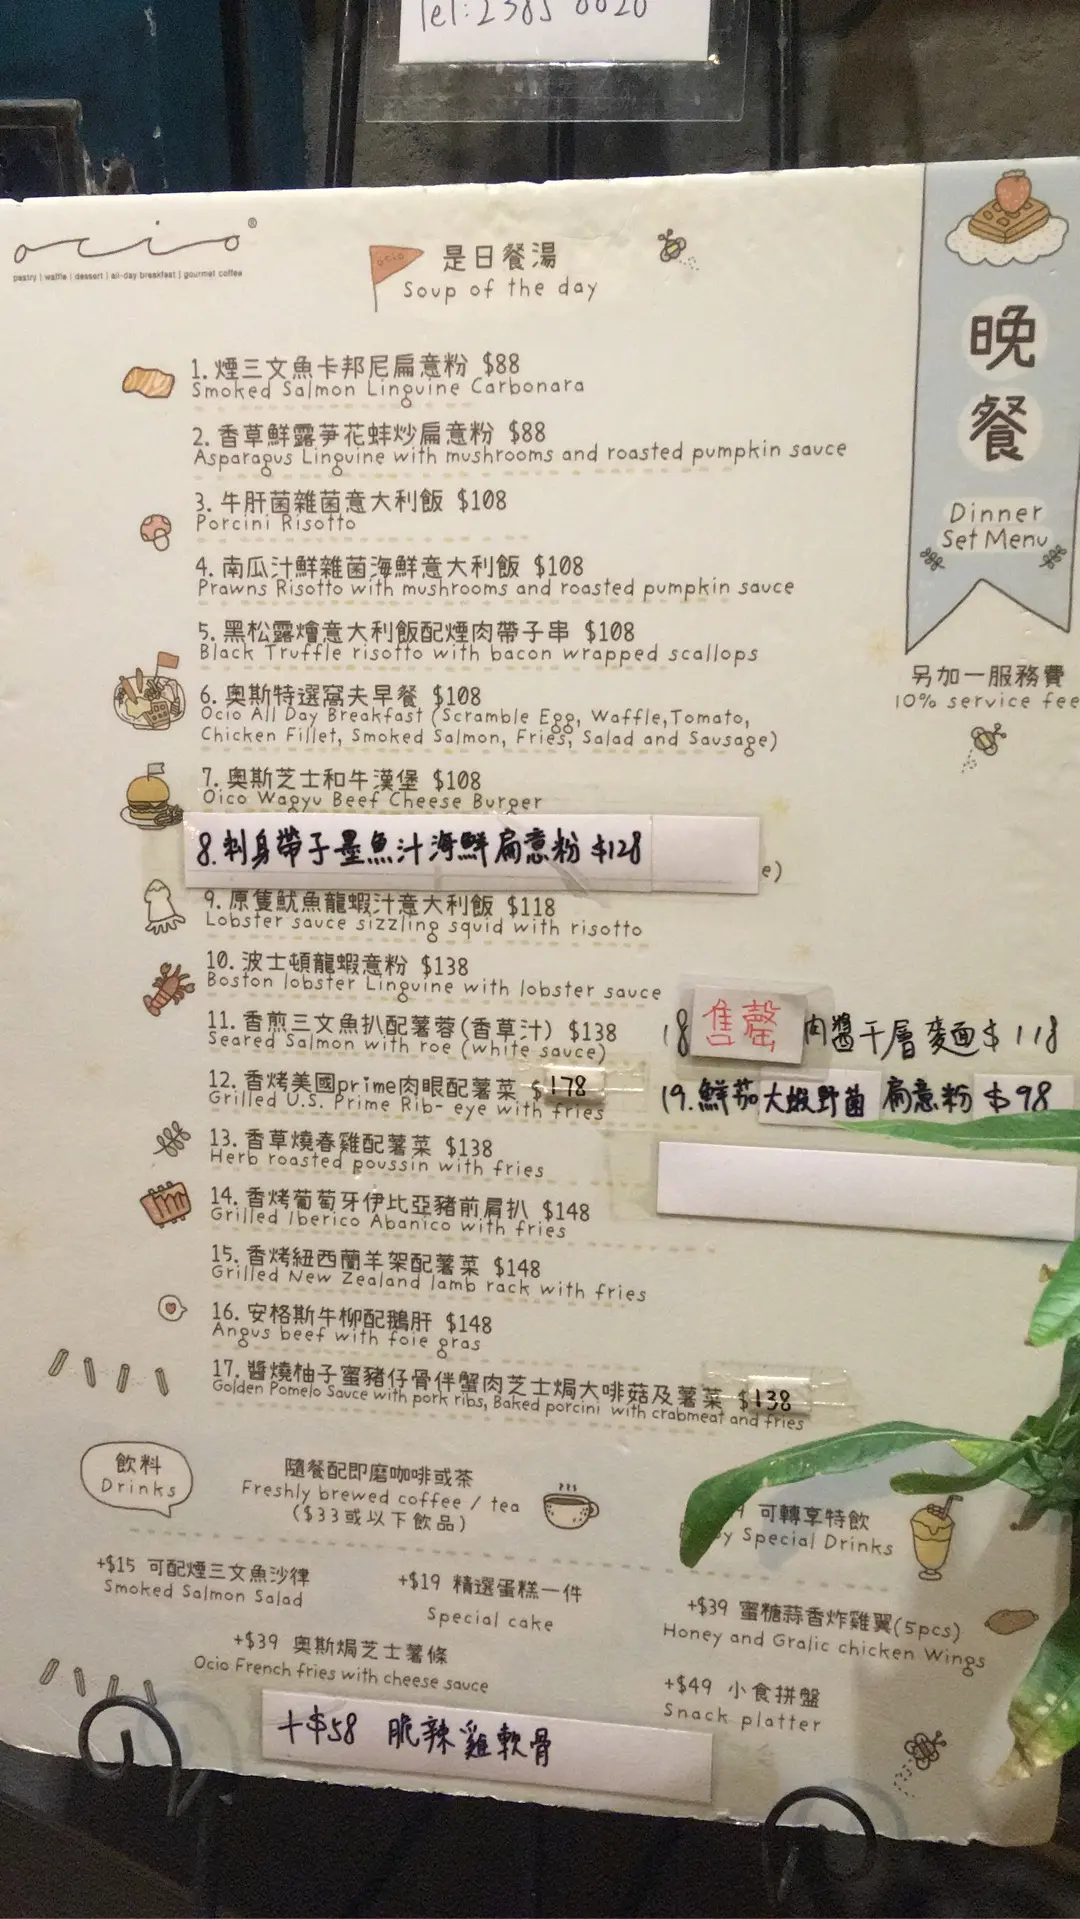 Tel: 2385 0020
ocio®
pastry | waffle | dessert | all-day breakfast | gourmet coffee
ocio
是日餐湯
Soup of the day
晚餐
Dinner
Set Menu
另加一服務費
10% service fee
1. 煙三文魚卡邦尼扁意粉 $88
Smoked Salmon Linguine Carbonara
2. 香草鮮露笋花蚌炒扁意粉 $88
Asparagus Linguine with mushrooms and roasted pumpkin sauce
3. 牛肝菌雜菌意大利飯 $108
Porcini Risotto
4. 南瓜汁鮮雜菌海鮮意大利飯 $108
Prawns Risotto with mushrooms and roasted pumpkin sauce
5. 黑松露燴意大利飯配煙肉帶子串 $108
Black Truffle risotto with bacon wrapped scallops
6. 奥斯特選窩夫早餐 $108
Ocio All Day Breakfast (Scramble Egg, Waffle,Tomato,
Chicken Fillet, Smoked Salmon, Fries, Salad and Sausage)
7. 奥斯芝士和牛漢堡 $108
Oico Wagyu Beef Cheese Burger
8. 刺身帶子墨魚汁海鮮扁意粉 $128
e)
9. 原隻魷魚龍蝦汁意大利飯 $118
Lobster sauce sizzling squid with risotto
10. 波士頓龍蝦意粉 $138
Boston lobster Linguine with lobster sauce
11. 香煎三文魚扒配薯蓉(香草汁) $138
Seared Salmon with roe (white sauce)
12. 香烤美國prime肉眼配薯菜 $178
Grilled U.S. Prime Rib- eye with fries
13. 香草燒春雞配薯菜 $138
Herb roasted poussin with fries
14. 香烤葡萄牙伊比亞豬前肩扒 $148
Grilled Iberico Abanico with fries
15. 香烤紐西蘭羊架配薯菜 $148
Grilled New Zealand lamb rack with fries
16. 安格斯牛柳配鵝肝 $148
Angus beef with foie gras
17. 醬燒柚子蜜豬仔骨伴蟹肉芝士焗大啡菇及薯菜 $138
Golden Pomelo Sauce with pork ribs, Baked porcini with crabmeat and fries
18 售罄 肉醬千層麵 $118
19. 鮮茄大蝦野菌扁意粉 $98
飲料
Drinks
隨餐配即磨咖啡或茶
Freshly brewed coffee / tea
($33或以下飲品)
可轉享特飲
y Special Drinks
+$15 可配煙三文魚沙律
Smoked Salmon Salad
+$19 精選蛋糕一件
Special cake
+$39 蜜糖蒜香炸雞翼(5pcs)
Honey and Gralic chicken Wings
+$39 奥斯焗芝士薯條
Ocio French fries with cheese sauce
+$49 小食拼盤
Snack platter
+$58 脆辣雞軟骨